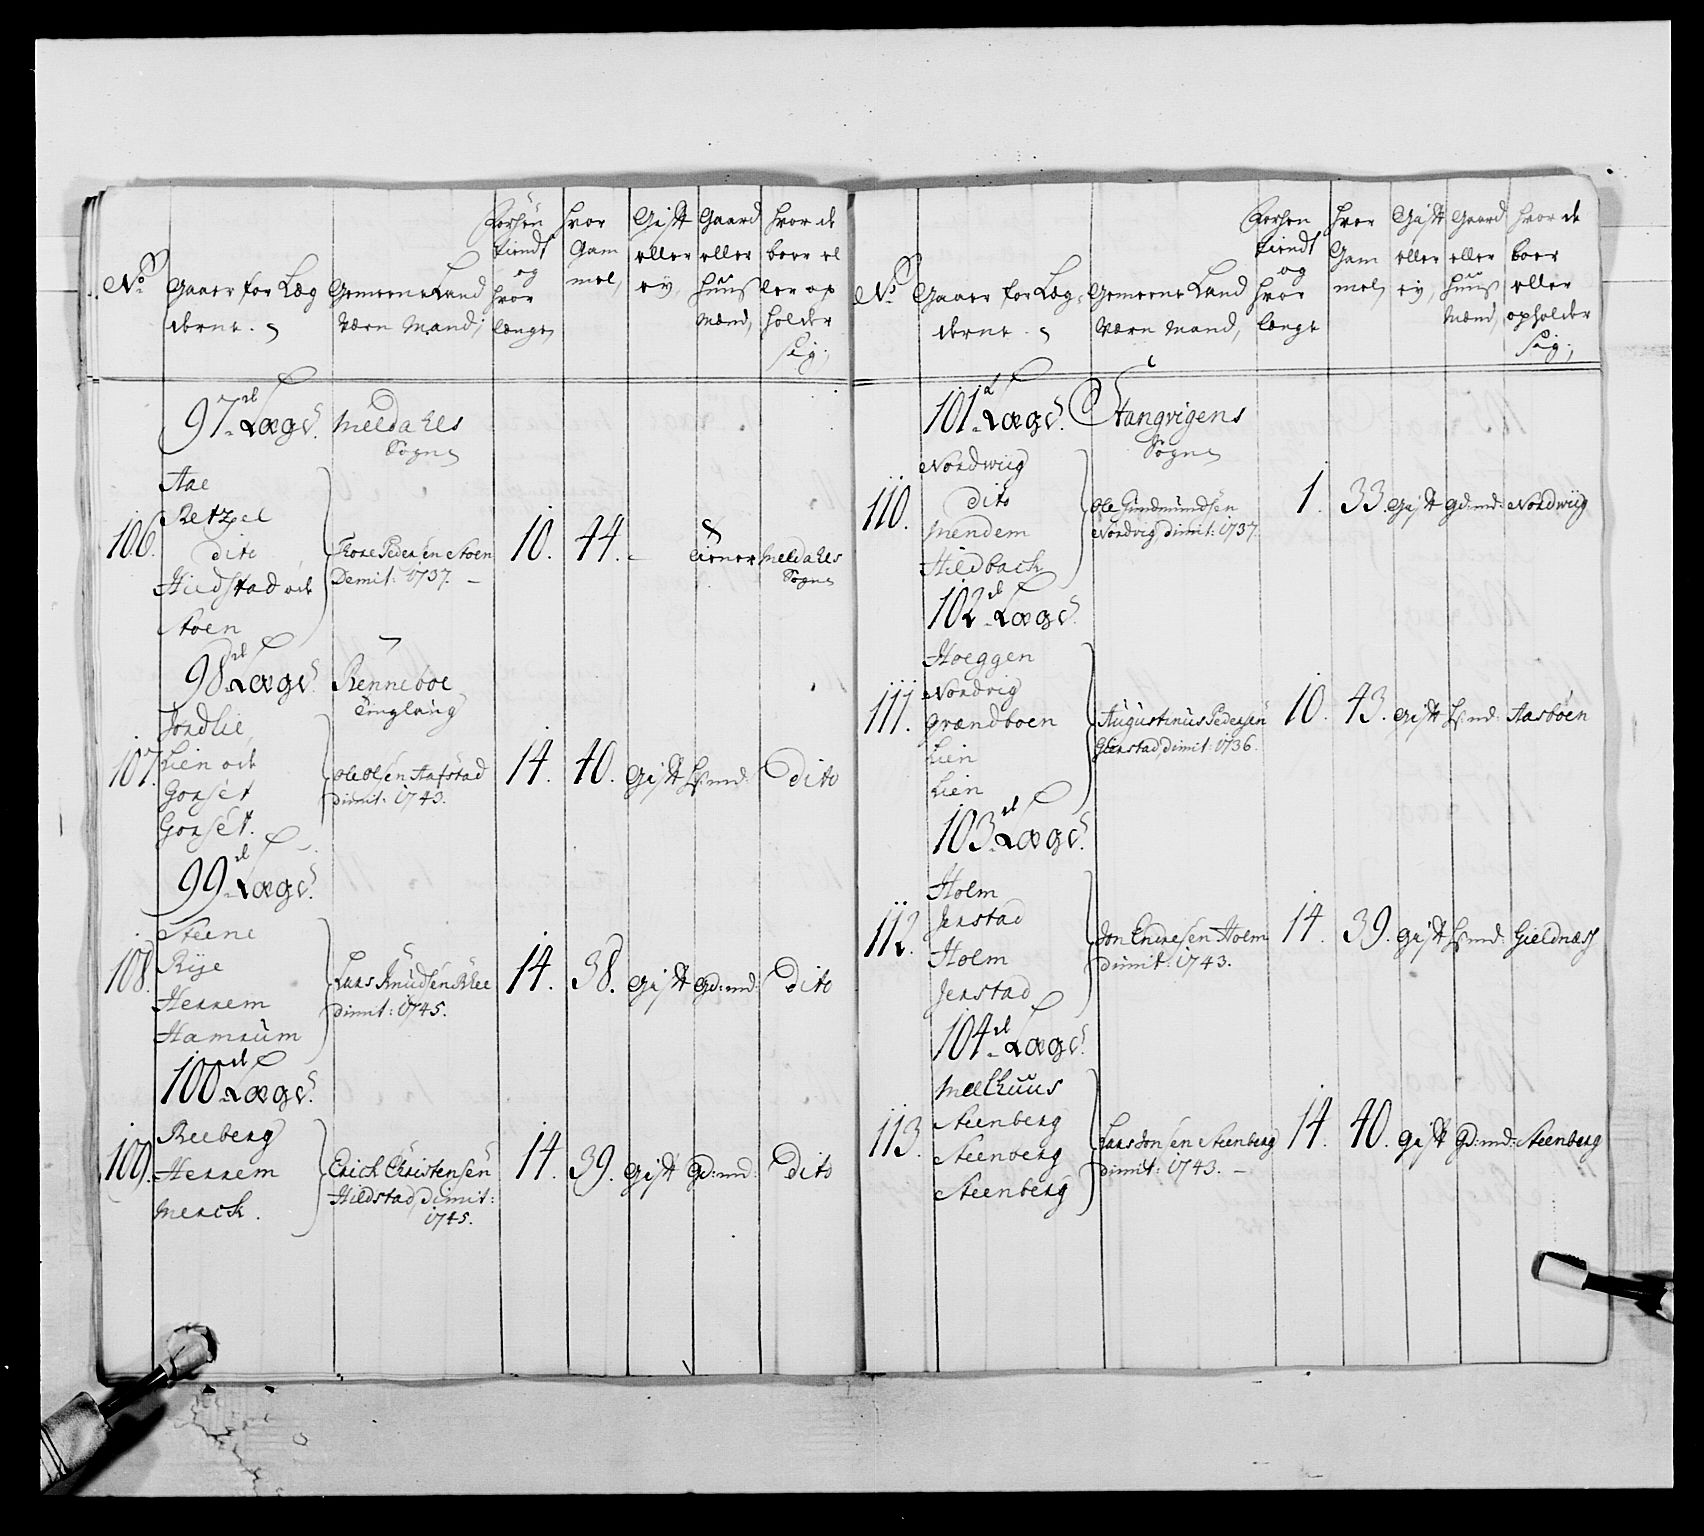 No
Gaaer for Læg
derne.
Gemeene Land
Værn Mand,
Forhen
tiendt
og
hvor
længe
hvor
Gam
mel,
Gift
eller
ey,
Gaard
eller
Huus
Mænd,
hvor de
boer el
ler op
holder
sig;
97de Lægd.
Meldahls
Sogn
106.
Aae
Retzel
dito
Hiedstad ock
Stoen
Thore Pedersen Stoen
Demit: 1737.
10.
44.
-
tiener
Meldahls
Sogn
98de Lægd.
Renneboe
Tinglaug
107.
Jordlie,
Lien ock
Gorset
Gorset.
Ole Olsen Aafstad
dimit: 1743.
14.
40.
Gift
Hs:md:
Dito
99de Lægd.
108.
Steene
Rije
Herrem
Hamrum
Lars Knudsen Rhee
dimit: 1745.
14.
38.
Gift
Gd:md:
Dito
100de Lægd.
109.
Reeberg
Herrem
Merck.
Erich Christensen
Hildstad, dimit:
1745.
14.
39.
Gift
Gd:md:
Dito
No
Gaaer for Læg
derne.
Gemeene Land
Værn Mand,
Forhen
tiendt
og
hvor
længe
hvor
Gam
mel,
Gift
eller
ey,
Gaard
eller
Huus
Mænd,
hvor de
boer
eller
opholder
sig;
101de Lægd.
Stangvigens
Sogn
110.
Nordwiig
dito
Mendem
Hildback
Ole Gundmundsen
Nordvig, dimit: 1737.
1.
33.
Gift
Gd:md:
Nordwiig
102de Lægd.
111.
Hoeggen
Nordvig
Grændboen
Lien
Lien
Augustinus Pedersen
Gierstad, dimit: 1736.
10.
43.
Gift
Hs:md:
Aasbøen
103de Lægd.
112.
Holm
Jerstad
Holm
Jerstad
Jon Endresen Holm
dimit: 1743.
14.
39.
Gift
Hs:md:
Gieldnæss
104de Lægd.
113.
Meelhuus
Steenberg
Steenberg
Steenberg
Lars Jonsen Steenberg
dimit: 1743. -
14.
40.
Gift
Gd:md:
Steenberg